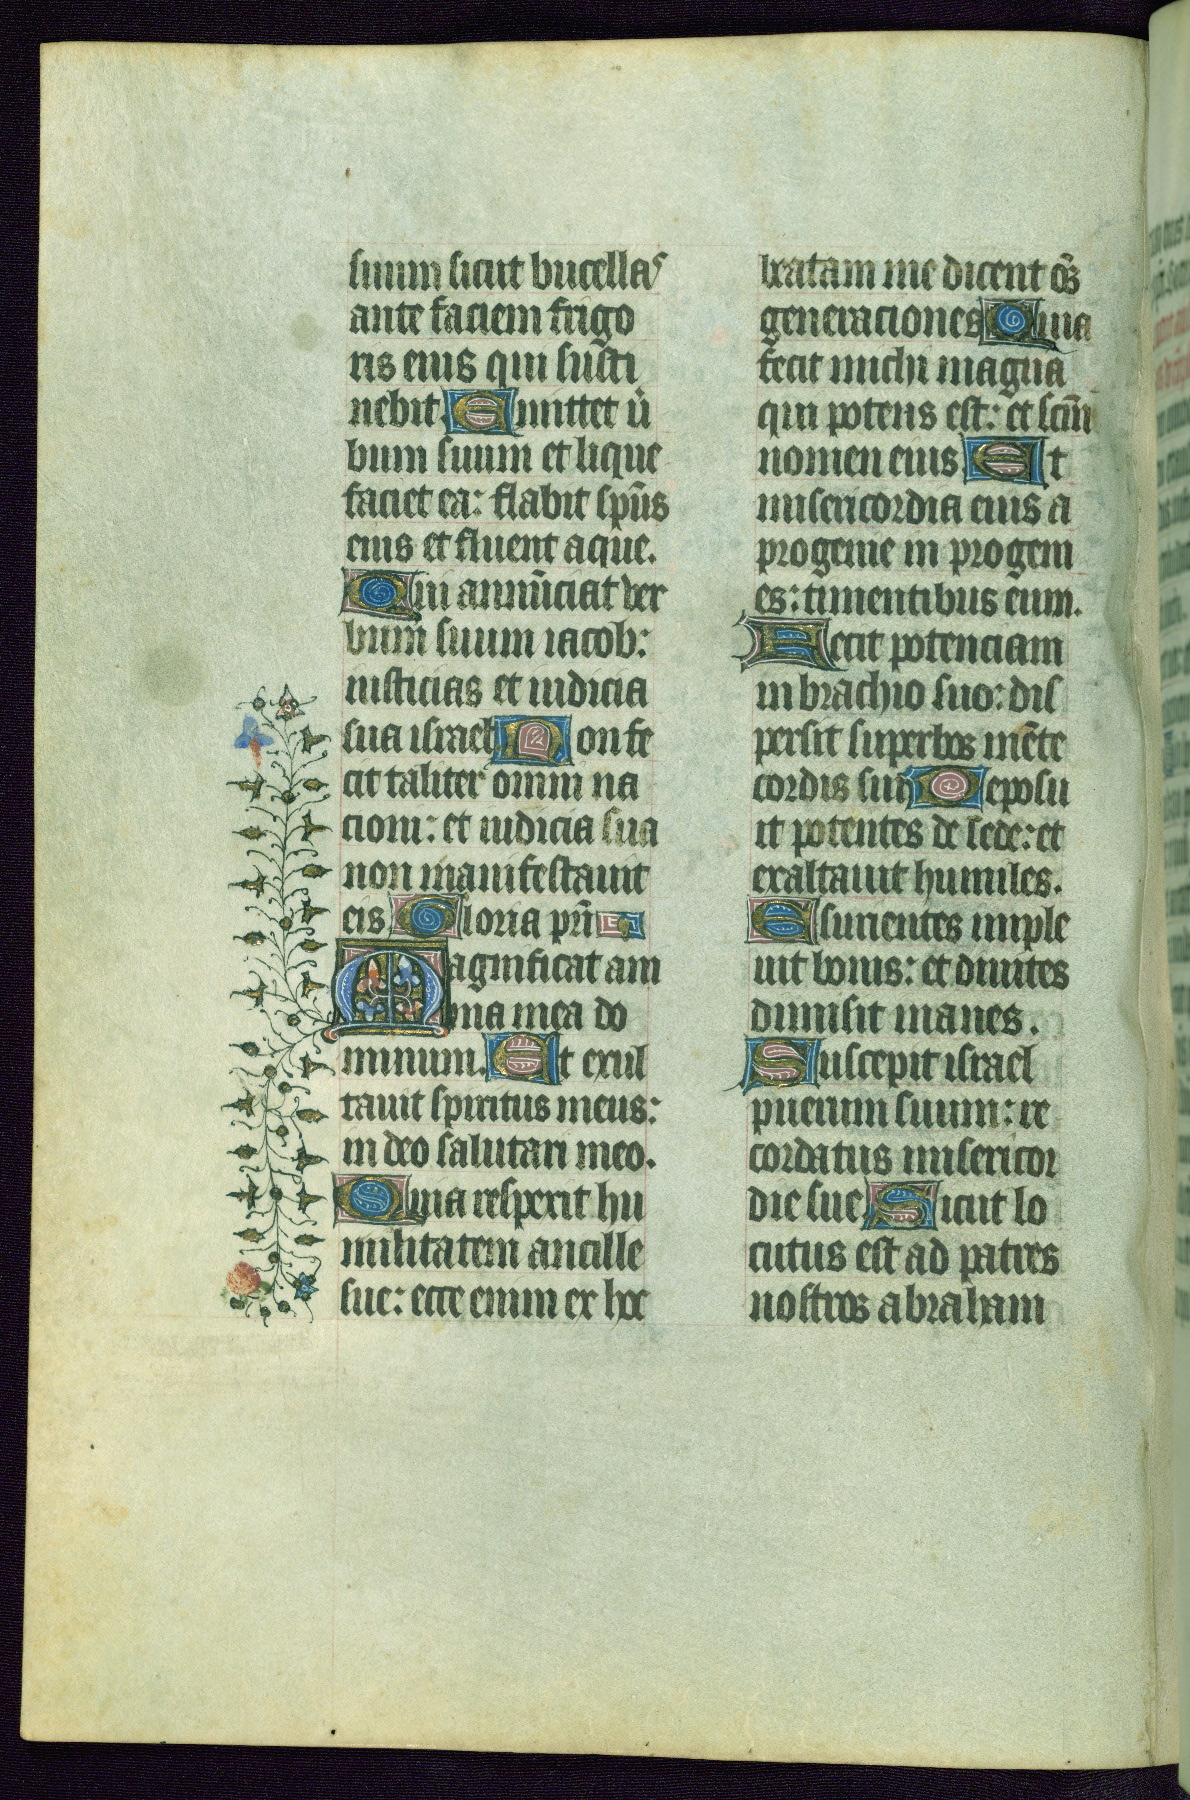 suum sicut bucellas
ante faciem frigo
ris eius quis susti
nebit. Emittet ū
bum suum et lique
faciet ea: flabit spūs
eius et fluent aque.
Qui annūciat ver
bum suum iacob:
iusticias et iudicia
sua israel. Non fe
cit taliter omni na
cioni: et iudicia sua
non manifestauit
eis. Gloria pri̅
Magnificat ani
ma mea do
minum. Et exul
tauit spiritus meus:
in deo salutari meo.
Quia respexit hu
militatem ancille
sue: ecce enim ex hoc
beatam me dicent oēs
generationes Quia
fecit michi magna
qui potens est: et scm̄
nomen eius. Et
misericordia eius a
progenie in progeni
es: timentibus eum.
Fecit potenciam
in brachio suo: dis
persit superbos mēte
cordis sui. Deposu
it potentes de sede: et
exaltauit humiles.
Esurientes imple
uit bonis: et diuites
dimisit inanes.
Suscepit israel
puerum suum: re
cordatus misericor
die sue. Sicut lo
cutus est ad patres
nostros abraham